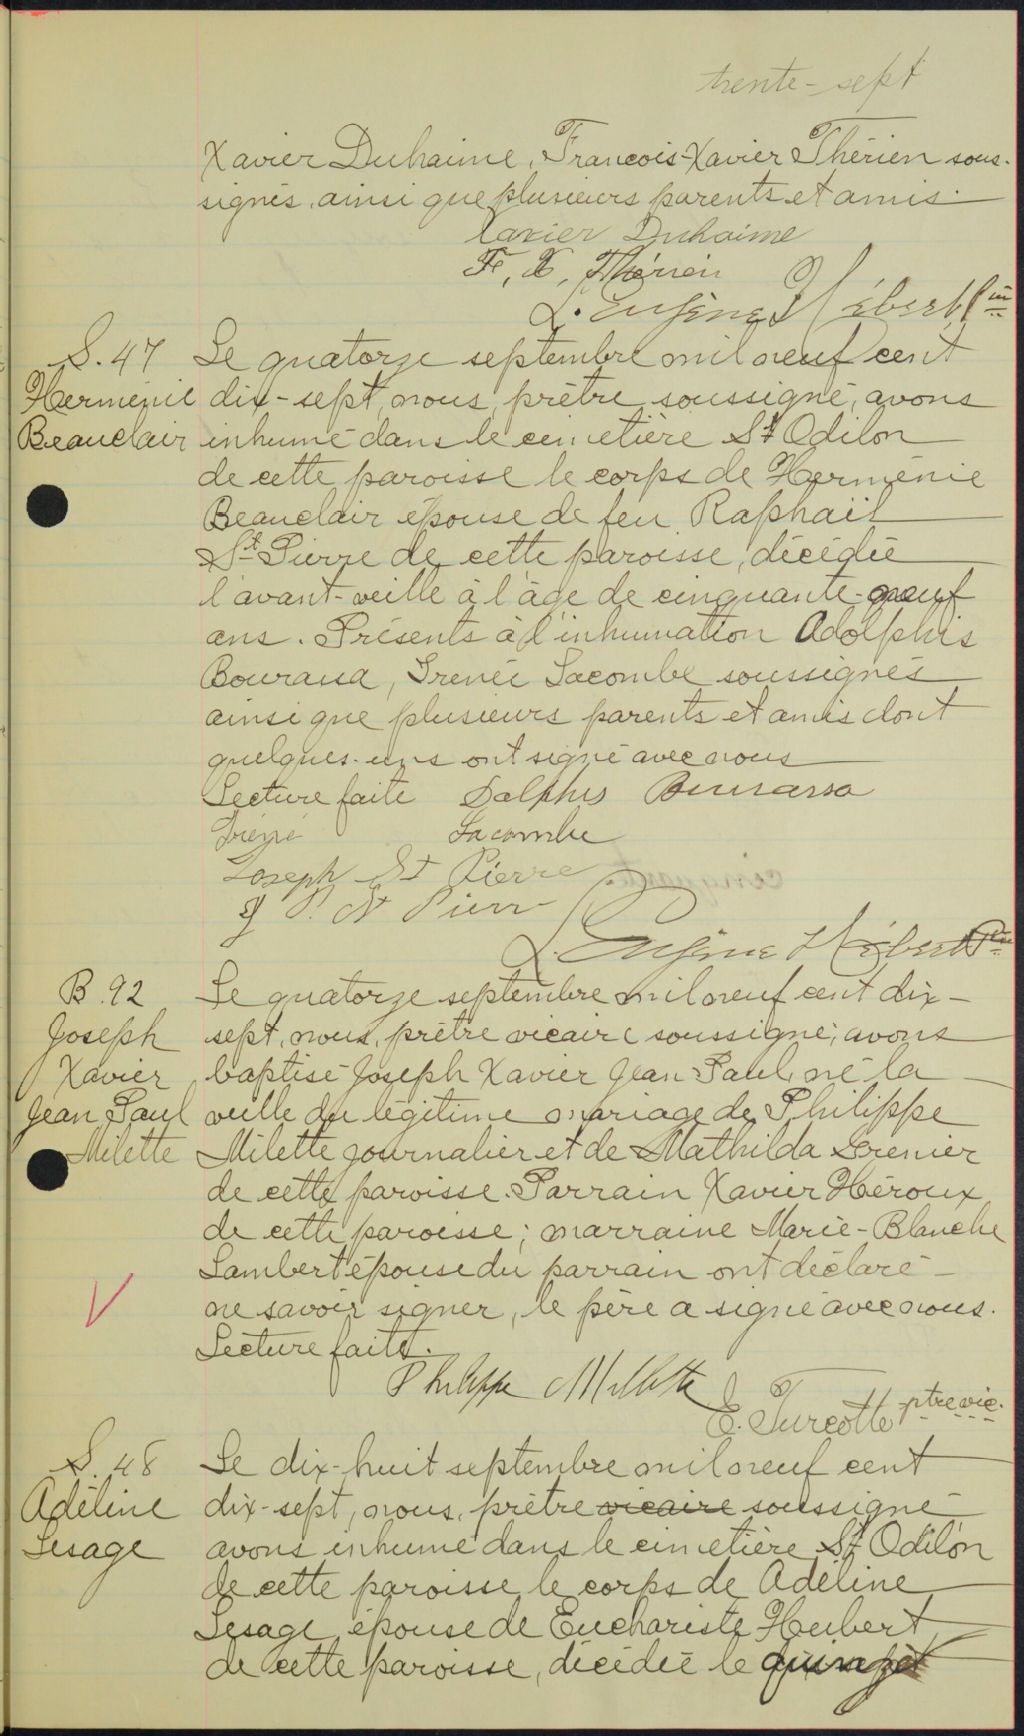 trente-sept
Xavier Duhaime, Francois-Xavier Thérien sous-
signés, ainsi que plusieurs parents et amis.
Xavier Duhaime
F, X, Thérrien
L. Eugène Hébert, Ptre
S. 47
Herménie
Beauclair
Le quatorze septembre mil neuf cent
dix-sept, nous, prêtre soussigné, avons
inhumé dans le cimetière St Odilon
de cette paroisse le corps de Herménie
Beauclair épouse de feu Raphaël
St-Pierre de cette paroisse, décédée
l'avant-veille à l'âge de cinquante-neuf
ans. Présents à l'inhumation Adolphis
Bourassa, Irenée Lacombe soussignés
ainsi que plusieurs parents et amis dont
quelques-uns ont signé avec nous
Lecture faite Dolphis Bourassa
Iréné Lacombe
Joseph St Pierre
J P. St Pierr
L. Eugène Hébert Ptre
B. 92
Joseph
Xavier
Jean Paul
Milette
Le quatorze septembre mil neuf cent dix-
sept, nous, prêtre vicaire soussigné, avons
baptisé Joseph Xavier Jean Paul, né la
veille du légitime mariage de Philippe
Milette journalier et de Mathilda Grenier
de cette paroisse. Parrain Xavier Héroux
de cette paroisse; marraine Marie-Blanche
Lambert épouse du parrain ont déclaré
ne savoir signer, le père a signé avec nous.
Lecture faite.
Philippe Millette
E. Turcotte ptre vic.
S. 48
Adéline
Lesage
Le dix-huit septembre mil neuf cent
dix-sept, nous, prêtre vicaire soussigné
avons inhumé dans le cimetière St Odilon
de cette paroisse le corps de Adéline
Lesage, épouse de Euchariste Heubert
de cette paroisse, décédée le quinze